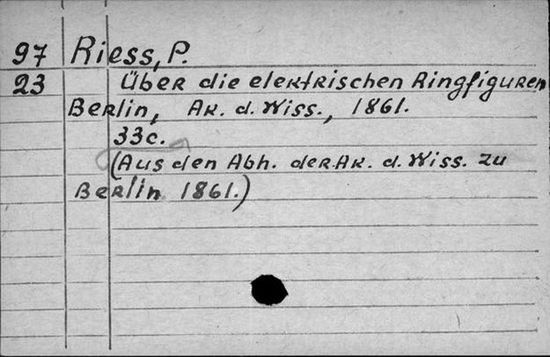 97 Riess, P.
23 Über die elektrischen Ringfiguren
Berlin, Ak. d. Wiss., 1861.
33c.
(Aus den Abh. der Ak. d. Wiss. zu
Berlin 1861.)